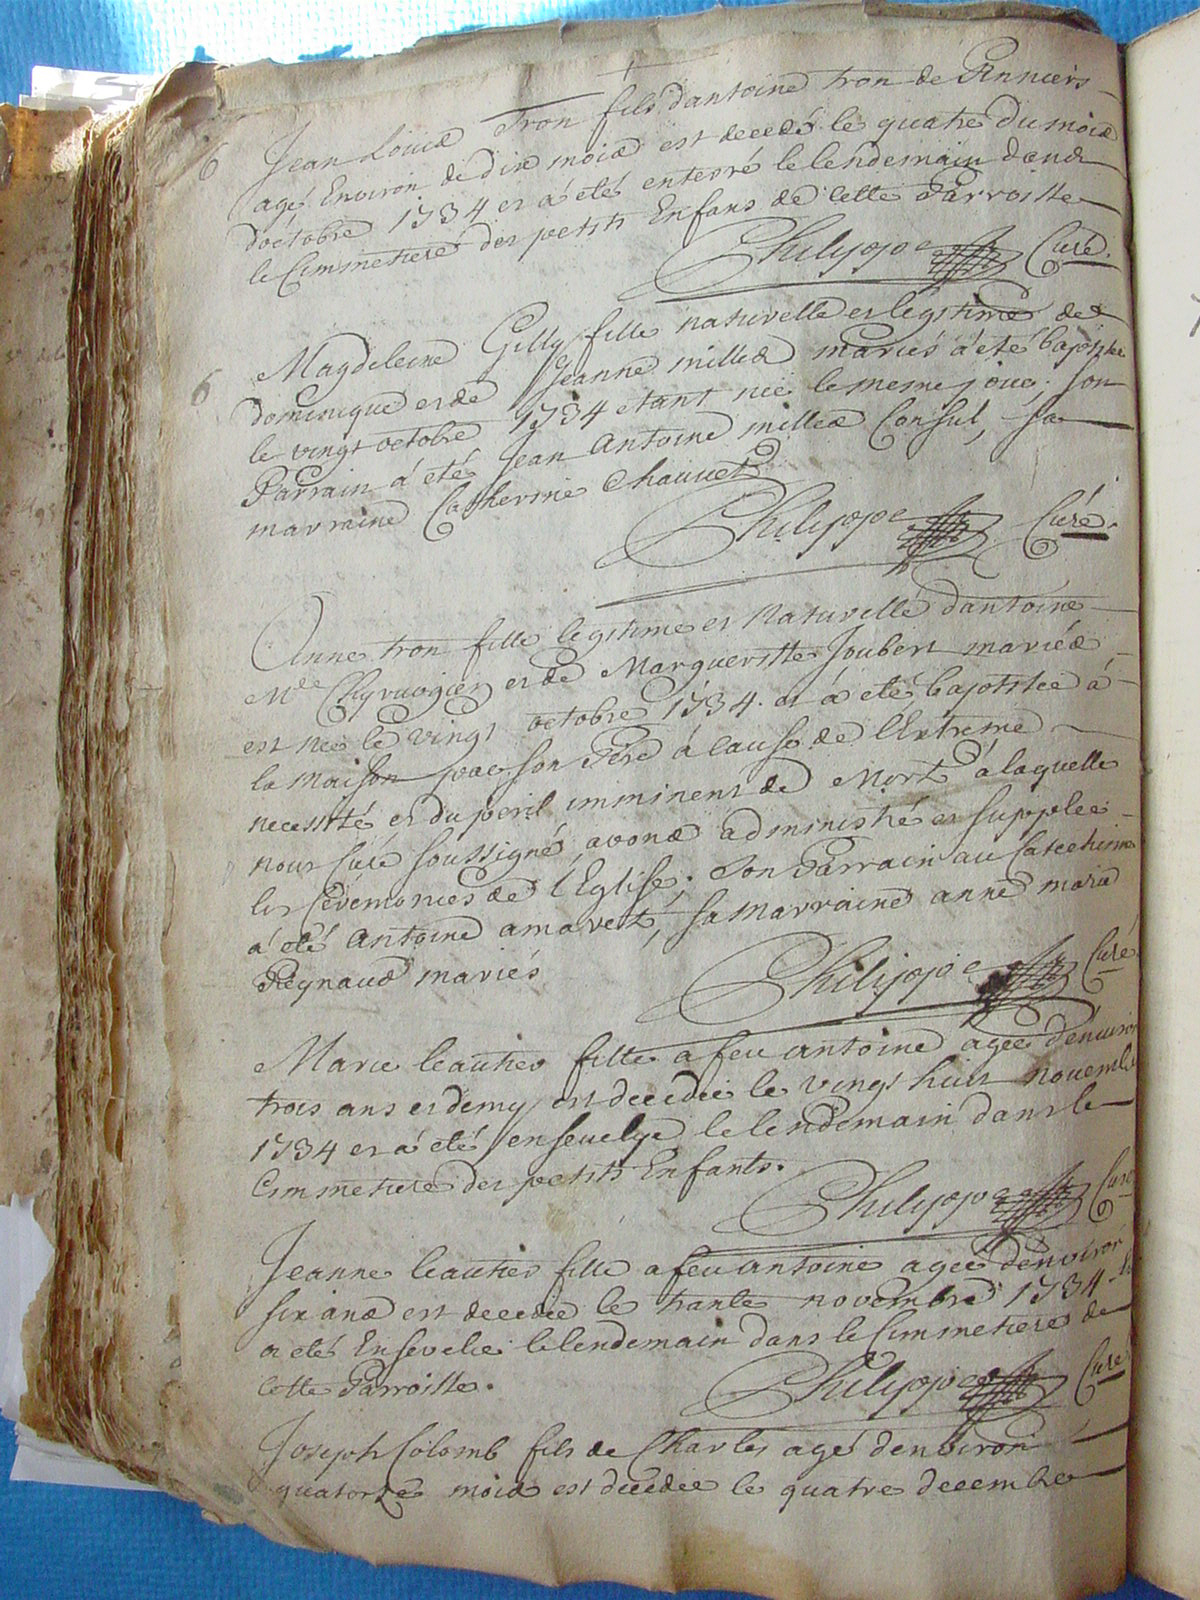 6 Jean Louis Tron fils d'antoine tron de
agé Environ de dix mois est decedé le quatre du mois
d'octobre 1734 et a été enterré le lendemain dans
le Cimmetiere des petits Enfans de cette Parroisse
Philippe Curé.
6 Magdeleine Gilly fille naturelle et legitime de
dominique et de Jeanne millea mariés a été baptisée
le vingt octobre 1734 etant née le meme jour. son
Parrain a été Jean Antoine millea Consul, sa
marraine Catherine Chauvet
Philippe Curé.
Anne tron fille legitime et Naturelle d'antoine
Me Chyrurgien et de Margueritte Joubert mariés
est née le vingt octobre 1734. et a été baptisée à
la maison par son Pere à cause de l'Extreme
necessité et du peril imminent de Mort à laquelle
nous Curé soussigné avons administré et supplée
les Ceremonies de l'Eglise. Son Parrain au Catechisme
a été antoine amavet, sa Marraine anne marie
Reynaud mariés
Philippe Curé
Marie leautier fille a feu antoine agée d'environ
trois ans et demy est decedée le vingt huit novembre
1734 et a été ensevelye le lendemain dans le
Cimmetiere des petits Enfants.
Philippe Curé
Jeanne leautier fille a feu antoine agée d'environ
six ans est decedée le trante novembre 1734
a eté Ensevelie le lendemain dans le Cimmetiere de
cette Parroisse.
Philippe Curé
Joseph Colomb fils de Charles agé d'environ
quatorze mois est decedée le quatre decembre